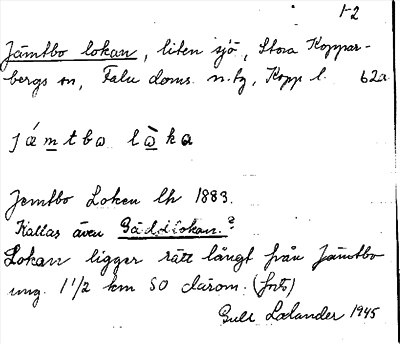 1-2
Jämtbo lokan, liten sjö, Stora Koppar-
bergs sn, Falu doms. n. tg, Kopp l. 62a
jǽmtbω lὼkα
Jemtbo Loken Lk 1883.
Kallas även Gäddlokan.?
Lokan ligger rätt långt från Jämtbo
ung. 1 1/2 km SO därom. (forts)
Gull Lœlander 1945